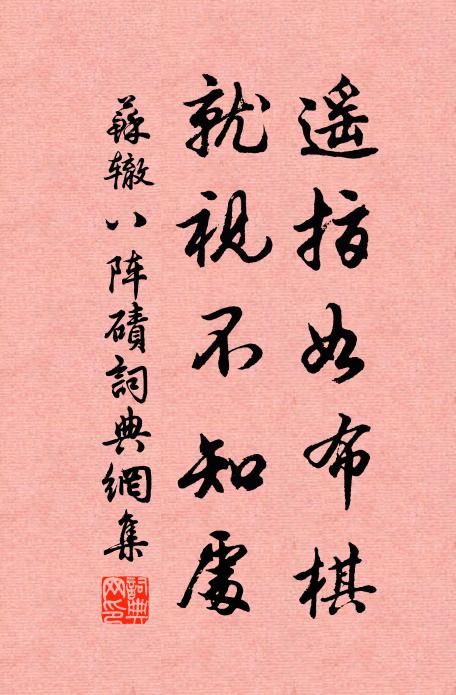 遥指如布棋
就視不知處
蘇辙八阵磧詞典網集
詞典網印